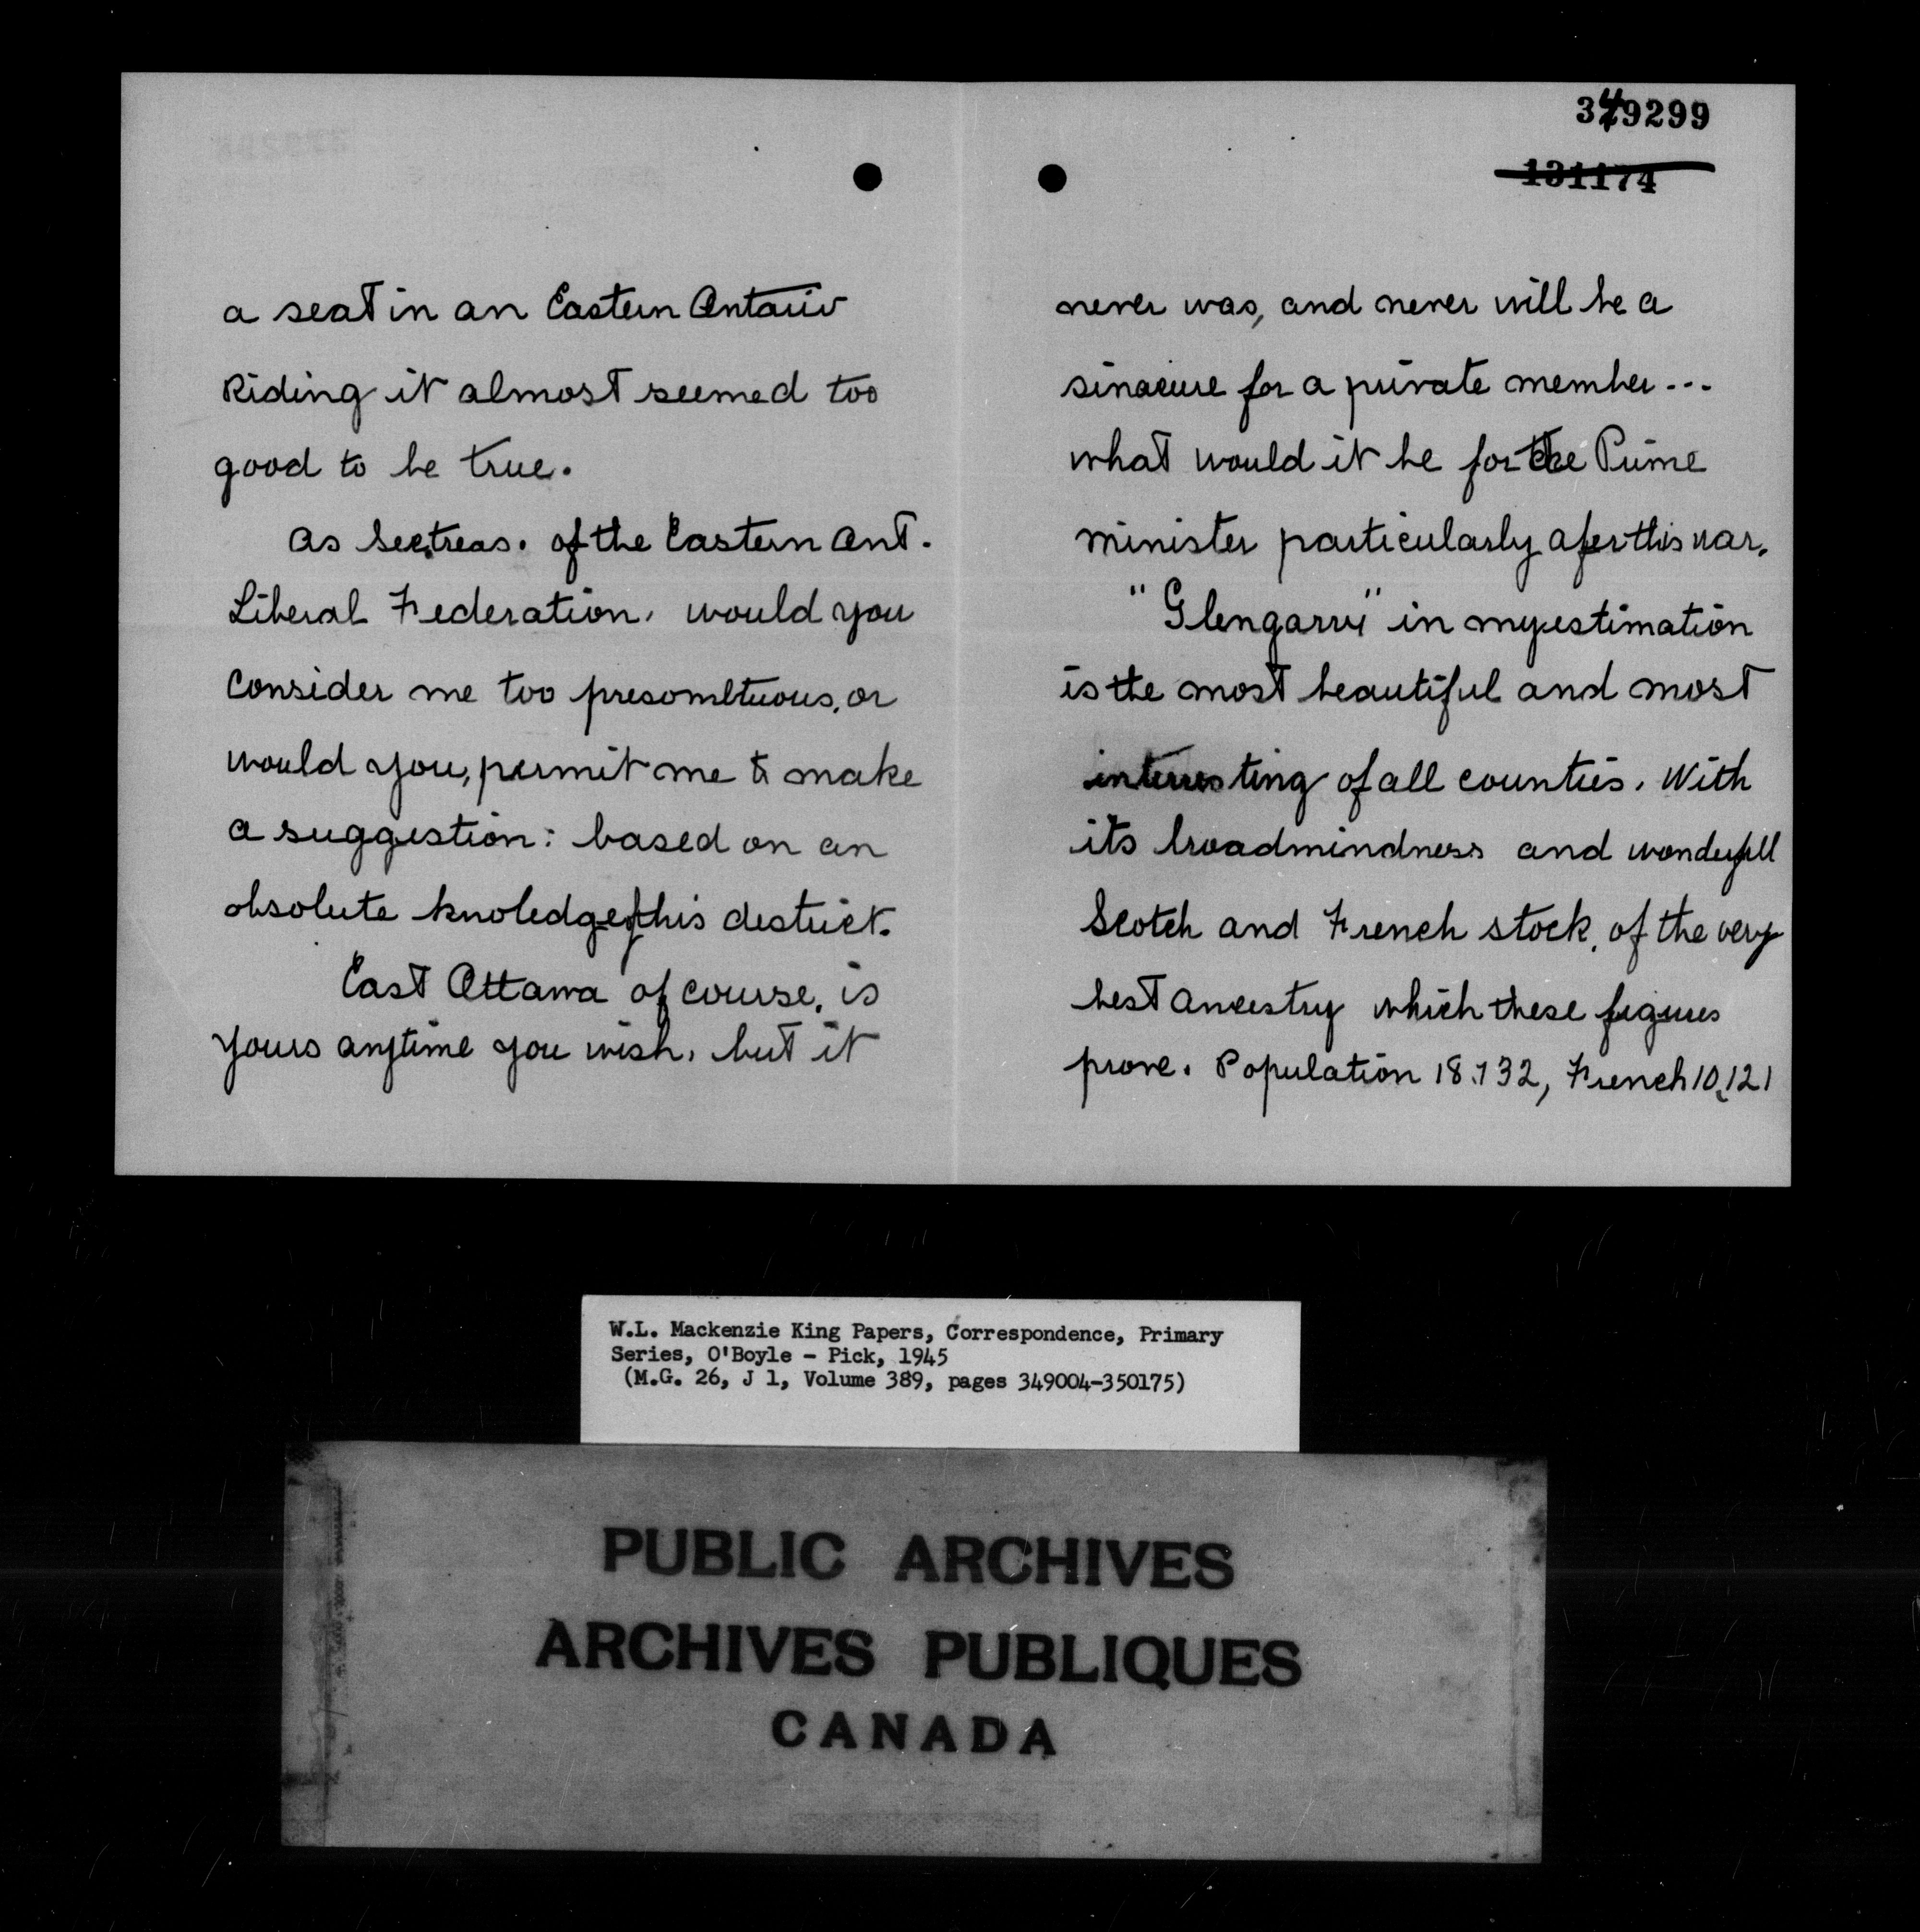 349299
131174
a seat in an Eastern Ontario
Riding it almost seemed too
good to be true.
As Sec,treas. of the Eastern Ont.
Liberal Federation, would you
Consider me too presombtuous, or
would you, permit me to make
a suggestion: based on an
absolute knoledge of this destrict.
East Ottawa of course, is
yours anytime you wish, but it
never was, and never will be a
sinacure for a private member...
what would it be for the Prime
Minister particularly after this war.
"Glengarry" in my estimation
is the most beautiful and most
interresting of all counties. With
its broadmindness and wonderfull
Scotch and French stock, of the very
best ancestry which these figures
prove. Population 18.732, French 10,121
W.L. Mackenzie King Papers, Correspondence, Primary
Series, O'Boyle - Pick, 1945
(M.G. 26, J 1, Volume 389, pages 349004-350175)
PUBLIC ARCHIVES
ARCHIVES PUBLIQUES
CANADA